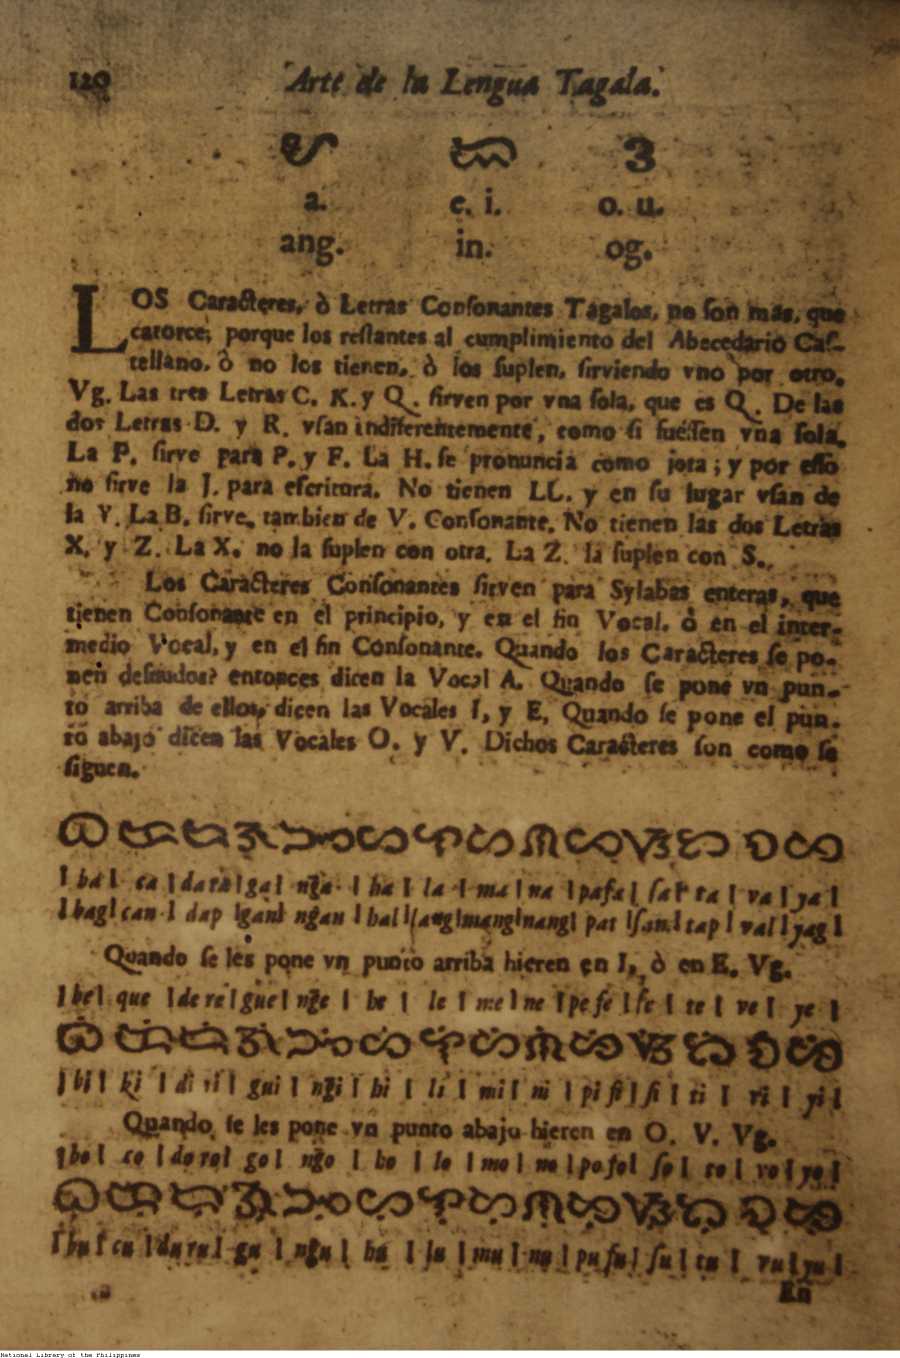 120 Arte de la Lengua Tagala.
a. e. i. o. u.
ang. in. og.
LOS Caracteres, ò Letras Conſonantes Tagalos, no ſon mas, que
catorce; porque los reſtantes al cumplimiento del Abecedario Caſ-
tellano, ò no los tienen, ò los ſuplen, ſirviendo vno por otro.
Vg. Las tres Letras C. K. y Q. ſirven por vna ſola, que es Q. De las
dos Letras D. y R. vſan indiferentemente, como ſi fueſſen vna ſola.
La P. ſirve para P. y F. La H. ſe pronuncia como jota; y por eſſo
no ſirve la J. para eſcritura. No tienen LL. y en ſu lugar vſan de
la Y. La B. ſirve, tambien de V. Conſonante. No tienen las dos Letras
X. y Z. La X. no la ſuplen con otra. La Z. la ſuplen con S.
Los Caracteres Conſonantes ſirven para Sylabas enteras, que
tienen Conſonante en el principio, y en el fin Vocal, ò en el inter-
medio Vocal, y en el fin Conſonante. Quando los Caracteres ſe po-
nen deſnudos? entonces dicen la Vocal A. Quando ſe pone vn pun-
to arriba de ellos, dicen las Vocales I, y E, Quando ſe pone el pun-
to abajo dicen las Vocales O. y V. Dichos Caracteres ſon como ſe
ſiguen.
ᜊ ᜃ ᜇ ᜄ ᜅ ᜑ ᜎ ᜋ ᜈ ᜉ ᜐ ᜆ ᜏ ᜌ
| ba | ca | da ra | ga | ng̃a | ha | la | ma | na | pa fa | ſa | ta | va | ya |
| bag | can | dap | gan | ng̃an | hal | lang | mang | nang | pat | ſan | tap | val | yag |
Quando ſe les pone vn punto arriba hieren en I, ò en E. Vg.
| be | que | de re | gue | ng̃e | he | le | me | ne | pe fe | ſe | te | ve | ye |
ᜊᜒ ᜃᜒ ᜇᜒ ᜄᜒ ᜅᜒ ᜑᜒ ᜎᜒ ᜋᜒ ᜈᜒ ᜉᜒ ᜐᜒ ᜆᜒ ᜏᜒ ᜌᜒ
| bi | ki | di ri | gui | ng̃i | hi | li | mi | ni | pi fi | ſi | ti | vi | yi |
Quando ſe les pone vn punto abajo hieren en O. V. Vg.
| bo | co | do ro | go | ng̃o | ho | lo | mo | no | po fo | ſo | to | vo | yo |
ᜊᜓ ᜃᜓ ᜇᜓ ᜄᜓ ᜅᜓ ᜑᜓ ᜎᜓ ᜋᜓ ᜈᜓ ᜉᜓ ᜐᜓ ᜆᜓ ᜏᜓ ᜌᜓ
| bu | cu | du ru | gu | ng̃u | hu | lu | mu | nu | pu fu | ſu | tu | vu | yu |
En
National Library of the Philippines